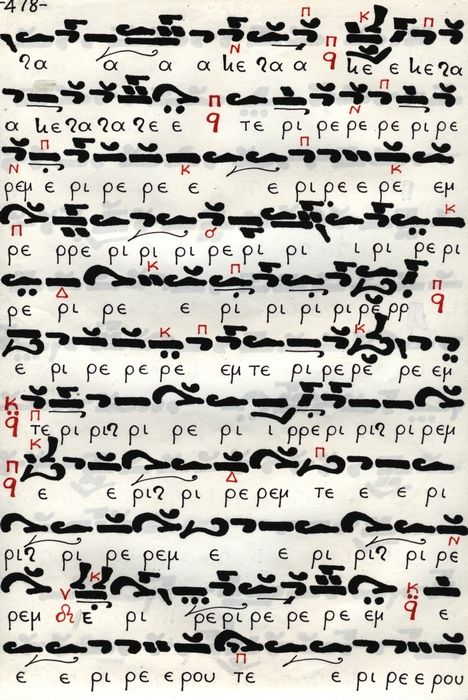 -478-
γα α α α κε γα κε ε κε γα
α κε γα γα γε ε τε ρι ρε ρε ρε ρι ρε
ρεμ ε ρι ρε ρε ε ε ε ρι ρε ε ρε εμ
ρε ρρε ρι ρι ρι ρε ρι ρι ι ρι ρε ρι
ρε ρι ρε ε ρι ρι ρι ρι ρε ρρ
ε ρι ρε ρε ρε εμ τε ρι ρε ρε ρε εμ
τε ρι ριγ ρι ρε ρι ι ρρε ρι ρι ρι ρεμ
ε ε ριγ ρι ρε ρεμ τε ε ε ρι
ριγ ρι ρε ρεμ ε ε ρι ριγ ρι ρε
ρεμ ε ρι ρε ρι ρε ρε ρεμ ε
ε ε ρι ρε ε ρου τε ε ρι ρε ε ρου